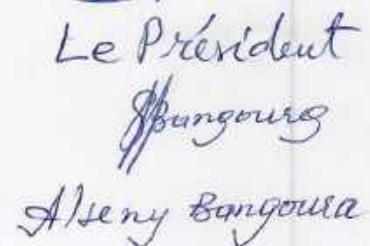 Le Président
Bangoura
Alseny Bangoura